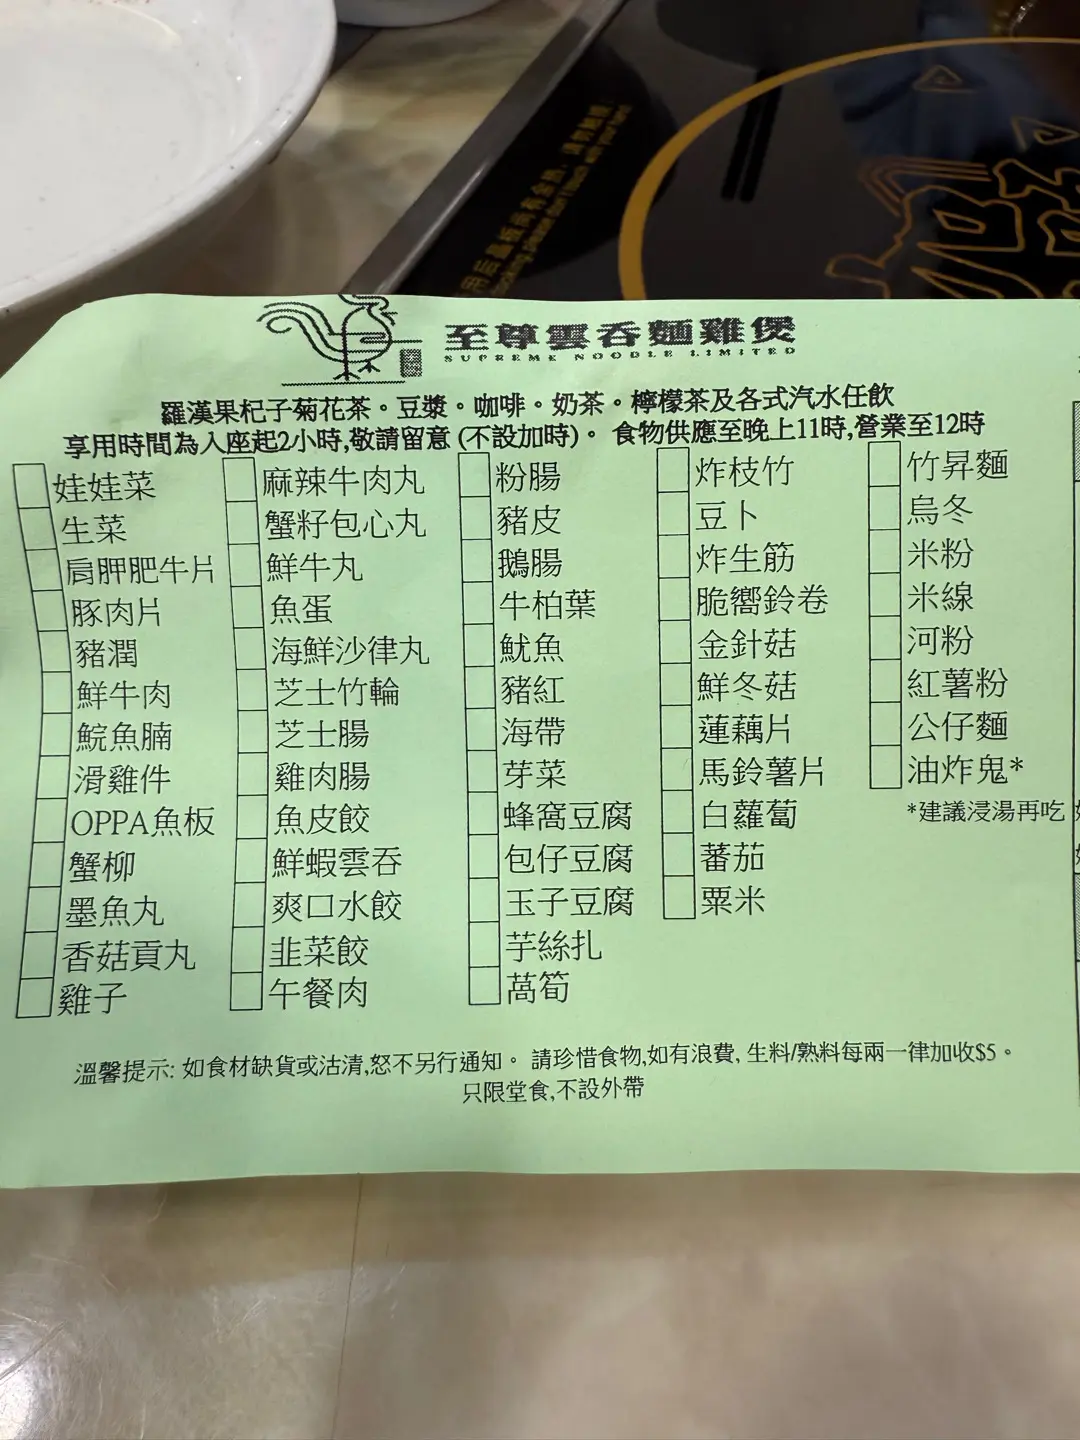 用后量板尚有余热，请勿触摸！
cooking,please don't touch with your hand
至尊雲吞麵雞煲
SUPREME NOODLE LIMITED
羅漢果杞子菊花茶。豆漿。咖啡。奶茶。檸檬茶及各式汽水任飲
享用時間為入座起2小時,敬請留意 (不設加時)。 食物供應至晚上11時,營業至12時
娃娃菜
生菜
肩胛肥牛片
豚肉片
豬潤
鮮牛肉
鯇魚腩
滑雞件
OPPA魚板
蟹柳
墨魚丸
香菇貢丸
雞子
麻辣牛肉丸
蟹籽包心丸
鮮牛丸
魚蛋
海鮮沙律丸
芝士竹輪
芝士腸
雞肉腸
魚皮餃
鮮蝦雲吞
爽口水餃
韭菜餃
午餐肉
粉腸
豬皮
鵝腸
牛柏葉
魷魚
豬紅
海帶
芽菜
蜂窩豆腐
包仔豆腐
玉子豆腐
芋絲扎
萵筍
炸枝竹
豆卜
炸生筋
脆嚮鈴卷
金針菇
鮮冬菇
蓮藕片
馬鈴薯片
白蘿蔔
蕃茄
粟米
竹昇麵
烏冬
米粉
米線
河粉
紅薯粉
公仔麵
油炸鬼*
*建議浸湯再吃
溫馨提示: 如食材缺貨或沽清,怒不另行通知。 請珍惜食物,如有浪費, 生料/熟料每兩一律加收$5。
只限堂食,不設外帶